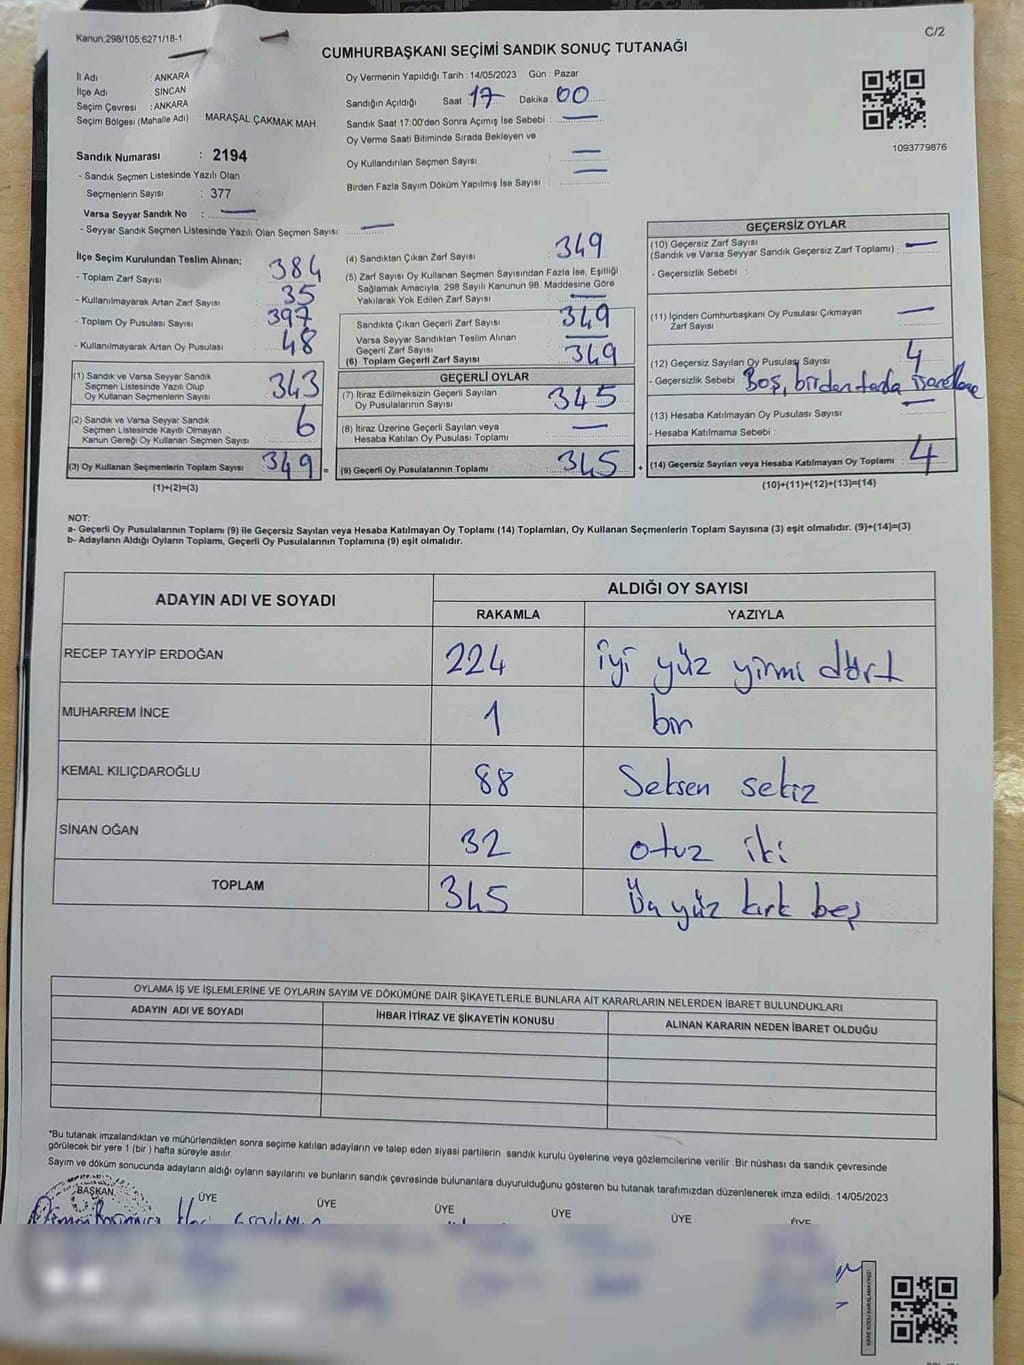 Kanun;298/105;6271/18-1
C/2
CUMHURBAŞKANI SEÇİMİ SANDIK SONUÇ TUTANAĞI
İl Adı : ANKARA
İlçe Adı : SİNCAN
Seçim Çevresi : ANKARA
Seçim Bölgesi (Mahalle Adı) : MARAŞAL ÇAKMAK MAH.
Sandık Numarası : 2194
- Sandık Seçmen Listesinde Yazılı Olan
Seçmenlerin Sayısı : 377
Varsa Seyyar Sandık No : —
- Seyyar Sandık Seçmen Listesinde Yazılı Olan Seçmen Sayısı : —
Oy Vermenin Yapıldığı Tarih : 14/05/2023 Gün : Pazar
Sandığın Açıldığı Saat 17 Dakika : 00
Sandık Saat 17:00'den Sonra Açımış İse Sebebi : —
Oy Verme Saati Bitiminde Sırada Bekleyen ve
Oy Kullandırılan Seçmen Sayısı : —
Birden Fazla Sayım Döküm Yapılmış İse Sayısı : —
1093779876
İlçe Seçim Kurulundan Teslim Alınan;
- Toplam Zarf Sayısı : 384
- Kullanılmayarak Artan Zarf Sayısı : 35
- Toplam Oy Pusulası Sayısı : 397
- Kullanılmayarak Artan Oy Pusulası : 48
(1) Sandık ve Varsa Seyyar Sandık
Seçmen Listesinde Yazılı Olup
Oy Kullanan Seçmenlerin Sayısı : 343
(2) Sandık ve Varsa Seyyar Sandık
Seçmen Listesinde Kayıtlı Olmayan
Kanun Gereği Oy Kullanan Seçmen Sayısı : 6
(3) Oy Kullanan Seçmenlerin Toplam Sayısı : 349 =
(1)+(2)=(3)
(4) Sandıktan Çıkan Zarf Sayısı : 349
(5) Zarf Sayısı Oy Kullanan Seçmen Sayısından Fazla İse, Eşitliği
Sağlamak Amacıyla, 298 Sayılı Kanunun 98. Maddesine Göre
Yakılarak Yok Edilen Zarf Sayısı : —
Sandıkta Çıkan Geçerli Zarf Sayısı : 349
Varsa Seyyar Sandıktan Teslim Alınan
Geçerli Zarf Sayısı : —
(6) Toplam Geçerli Zarf Sayısı : 349
GEÇERLİ OYLAR
(7) İtiraz Edilmeksizin Geçerli Sayılan
Oy Pusulalarının Sayısı : 345
(8) İtiraz Üzerine Geçerli Sayılan veya
Hesaba Katılan Oy Pusulası Toplamı : —
(9) Geçerli Oy Pusulalarının Toplamı : 345 +
GEÇERSİZ OYLAR
(10) Geçersiz Zarf Sayısı : —
(Sandık ve Varsa Seyyar Sandık Geçersiz Zarf Toplamı)
- Geçersizlik Sebebi :
(11) İçinden Cumhurbaşkanı Oy Pusulası Çıkmayan
Zarf Sayısı : —
(12) Geçersiz Sayılan Oy Pusulası Sayısı : 4
- Geçersizlik Sebebi : Boş, birden
(13) Hesaba Katılmayan Oy Pusulası Sayısı : —
- Hesaba Katılmama Sebebi :
(14) Geçersiz Sayılan veya Hesaba Katılmayan Oy Toplamı : 4
(10)+(11)+(12)+(13)=(14)
NOT:
a- Geçerli Oy Pusulalarının Toplamı (9) ile Geçersiz Sayılan veya Hesaba Katılmayan Oy Toplamı (14) Toplamları, Oy Kullanan Seçmenlerin Toplam Sayısına (3) eşit olmalıdır. (9)+(14)=(3)
b- Adayların Aldığı Oyların Toplamı, Geçerli Oy Pusulalarının Toplamına (9) eşit olmalıdır.
ADAYIN ADI VE SOYADI
ALDIĞI OY SAYISI
RAKAMLA YAZIYLA
RECEP TAYYİP ERDOĞAN 224 iyi yüz yirmi dört
MUHARREM İNCE 1 bir
KEMAL KILIÇDAROĞLU 88 Seksen sekiz
SİNAN OĞAN 32 otuz iki
TOPLAM 345 Üç yüz kırk beş
OYLAMA İŞ VE İŞLEMLERİNE VE OYLARIN SAYIM VE DÖKÜMÜNE DAİR ŞİKAYETLERLE BUNLARA AİT KARARLARIN NELERDEN İBARET BULUNDUKLARI
ADAYIN ADI VE SOYADI İHBAR İTİRAZ VE ŞİKAYETİN KONUSU ALINAN KARARIN NEDEN İBARET OLDUĞU
*Bu tutanak imzalandıktan ve mühürlendikten sonra seçime katılan adayların ve talep eden siyasi partilerin sandık kurulu üyelerine veya gözlemcilerine verilir .Bir nüshası da sandık çevresinde
görülecek bir yere 1 (bir ) hafta süreyle asılır.
Sayım ve döküm sonucunda adayların aldığı oyların sayılarını ve bunların sandık çevresinde bulunanlara duyurulduğunu gösteren bu tutanak tarafımızdan düzenlenerek imza edildi. 14/05/2023
BAŞKAN ÜYE ÜYE ÜYE ÜYE ÜYE ÜYE